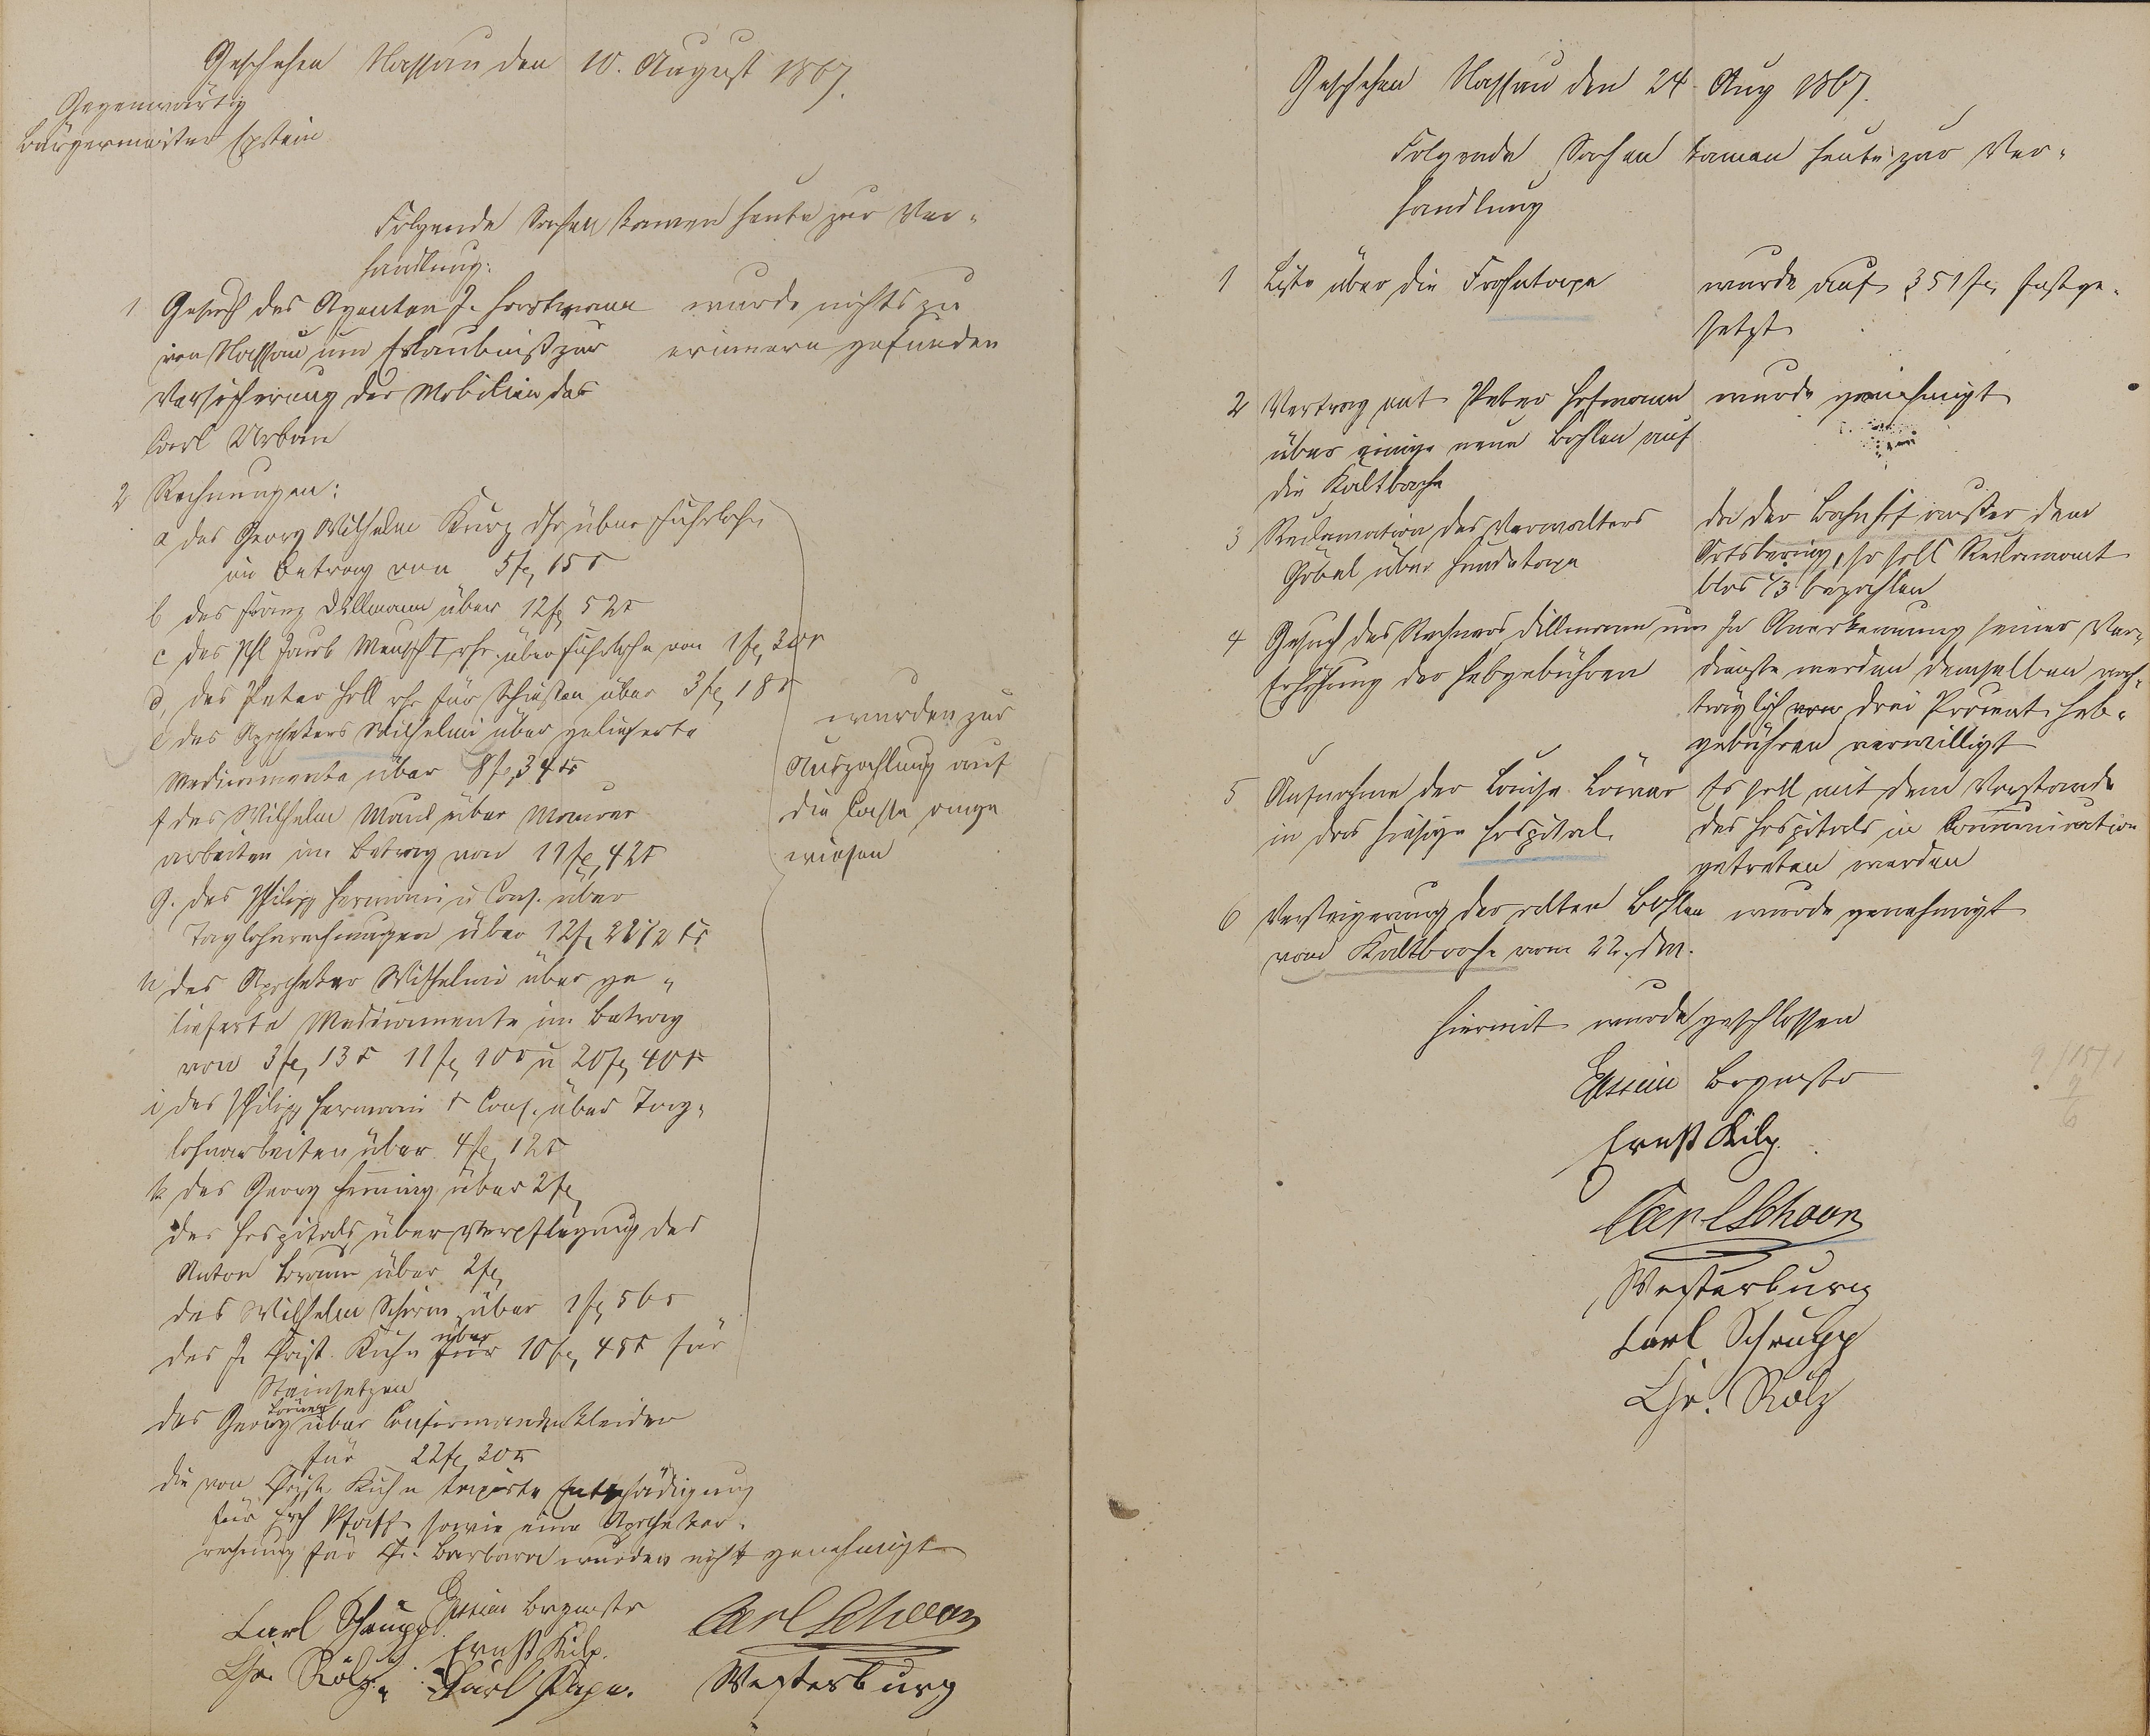 Geschehen Nassau den 10. August 1867.
Gegenwärtig
Bürgermeister Epstein
Folgende Sachen kamen heute zur Ver-
handlung:
1 Gesuch des Agenten J. Horstmann
von Nassau um Erlaubniß zur
Versicherung der Mobilien des
Carl Urban
wurde nichts zu
erinnern gefunden
2 Rechnungen:
a des Georg Wilhelm Kurz dhr über Fuhrlohn
im Betrag von 5 fl, 15 x
b des Franz Dillmann über 12 fl 52 x
c des Phl Jacob Mensch I rhr. über Fuhrlohn von 1 fl, 30 x
d, des Peter Holl rhr für Schießen über 3 fl, 18 x
e des Apothekers Wilhelmi über gelieferte
Medicamente über 8 fl, 34 xr
f des Wilhelm Maul über Maurer
arbeiten im Betrag von 11 fl, 42 x
g. des Philipp Hermani u Cons. über
Taglohnrechnungen über 12 fl 22 1/2 xr
h des Apotheker Wilhelmi über ge-
lieferte Medicamente im Betrag
von 3 fl, 13 x 11 fl 10 x u 20 fl, 40 x
i des Philipp Hermani & Cons. über Tag-
lohnarbeiten über 4 fl 12 x
k des Georg Henning über 2 fl,
des Hospitals über Verpflegung des
Anton Braun über 2 fl,
des Wilhelm Schirm über 1 fl, 56 x
des J. Christ. Kuhn für über 10 fl, 45 x für
Steinsetzen
des Georg Löwer über Confirmandenkleider
für 22 fl, 30 x
wurden zur
Auszahlung auf
die Casse ange
wiesen
die von Christ. Kuhn taxirte Entschädigung
für Pfaff sowie eine Apotheker-
rechnung für Barbara wurden nicht genehmigt
Epstein Brgmstr
Carl Schrupp
Carl Schoon
Ernst Kilp.
Chr. Rölz.
Carl Pape.
Westerburg
Geschehen Nassau den 24. Aug 1867.
Folgende Sachen kamen heute zur Ver-
handlung
1 Liste über die Frohntaxe
wurde auf 351 fl, festge-
setzt
2 Vertrag mit Peter Hofmann
über einige neue Bohlen auf
die Kaltbach
wurde genehmigt
3 Reclamation des Verwalters
Göbel über Hundetaxe
da der Bahnhof außer dem
Ortsbering, so soll Reclamant
blos 1/3 bezahlen
4 Gesuch des Rechners Dillmann um
Erhöhung der Hebgebühren
In Anerkennung seiner Ver-
dienste werden demselben nach-
träglich von drei Procent Heb-
gebühren verwilligt
5 Aufnahme der Louise Löwer
in das hiesige Hospital.
Es soll mit dem Vorstande
des Hospitals in Communication
getreten werden
6 Versteigerung der alten Bohlen
von Kaltbach vom 22. d M.
wurde genehmigt
Hiermit wurde geschlossen
Epstein Brgmstr
Ernst Kilp.
Carl Schoon
Westerburg
Carl Schrupp
Chr. Rölz